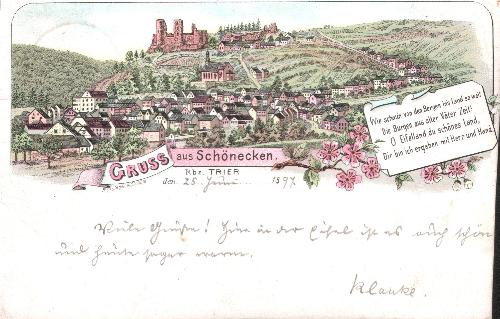 Wie schau'n von des Bergen ins Land so weit
Die Burgen aus alter Väter Zeit!
O Eifelland du schönes Land,
Dir bin ich ergeben mit Herz und Hand.
GRUSS aus Schönecken.
Rbz. TRIER
den 25. Juni 1897
Viele Grüße! Hier in der Eifel ist es auch schön
und heute sogar warm.
Klauke.